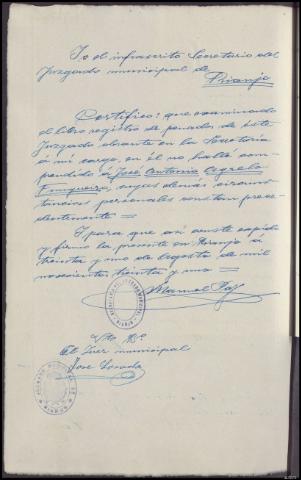 Yo el infrascrito Secretario del
Juzgado municipal de
Certifico: que examinado
el libro registro de penados de este
Juzgado obrante en la Secretaría
á mi cargo, en él no halla com-
prendido á José Antonio Cegrela
cuyas demás circuns-
tancias personales constan prece-
dentemente =
Y para que así conste expido
y firmo la presente en á
treinta y uno de Agosto de mil
novecientos treinta y uno =
Manuel
Vto Bº
El Juez municipal
Jose Losada